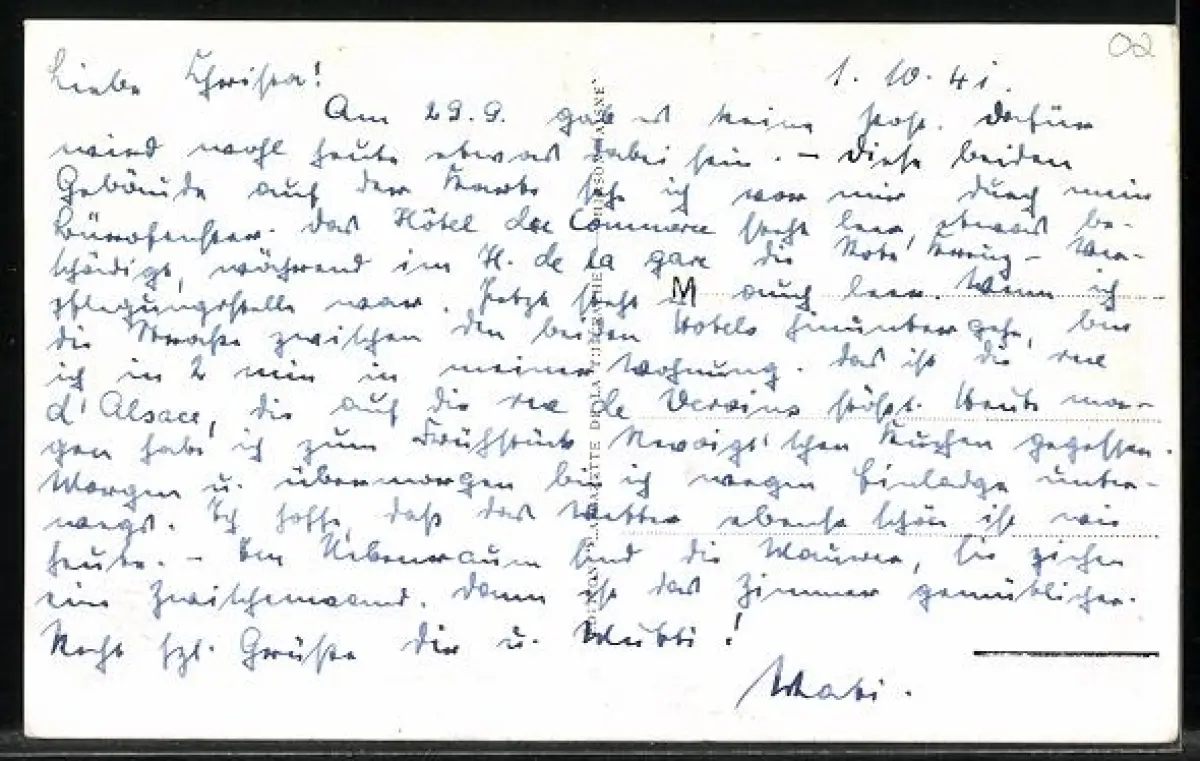 02
Liebe Christa! 1. 10. 41.
Am 29.9. gab es keine Post. Dafür
wird wohl heute etwas dabei sein. – Diese beiden
Gebäude auf der Karte sehe ich vor mir durch mein
Bürofenster. Das Hôtel du Commerce steht leer, etwas be-
schädigt, während im H. de la gare die Rote Kreuz-Ver-
pflegungsstelle war. Jetzt steht M auch leer. Wenn ich
die Straße zwischen den beiden Hotels hinunter gehe, bin
ich in 2 min in meiner Wohnung. Das ist die rue
d'Alsace, die auf die rue de Vervins stößt. Heute mor-
gen habe ich zum Frühstück Kuchen gegessen.
Morgen u. übermorgen bin ich wegen unter-
wegs. Ich hoffe, daß das Wetter ebenso schön ist wie
heute. – Im Nebenraum sind die Maurer, sie ziehen
eine Zwischenwand. Dann ist das Zimmer gemütlicher.
Recht hzl. Grüße dir u. Mutti!
DE LA